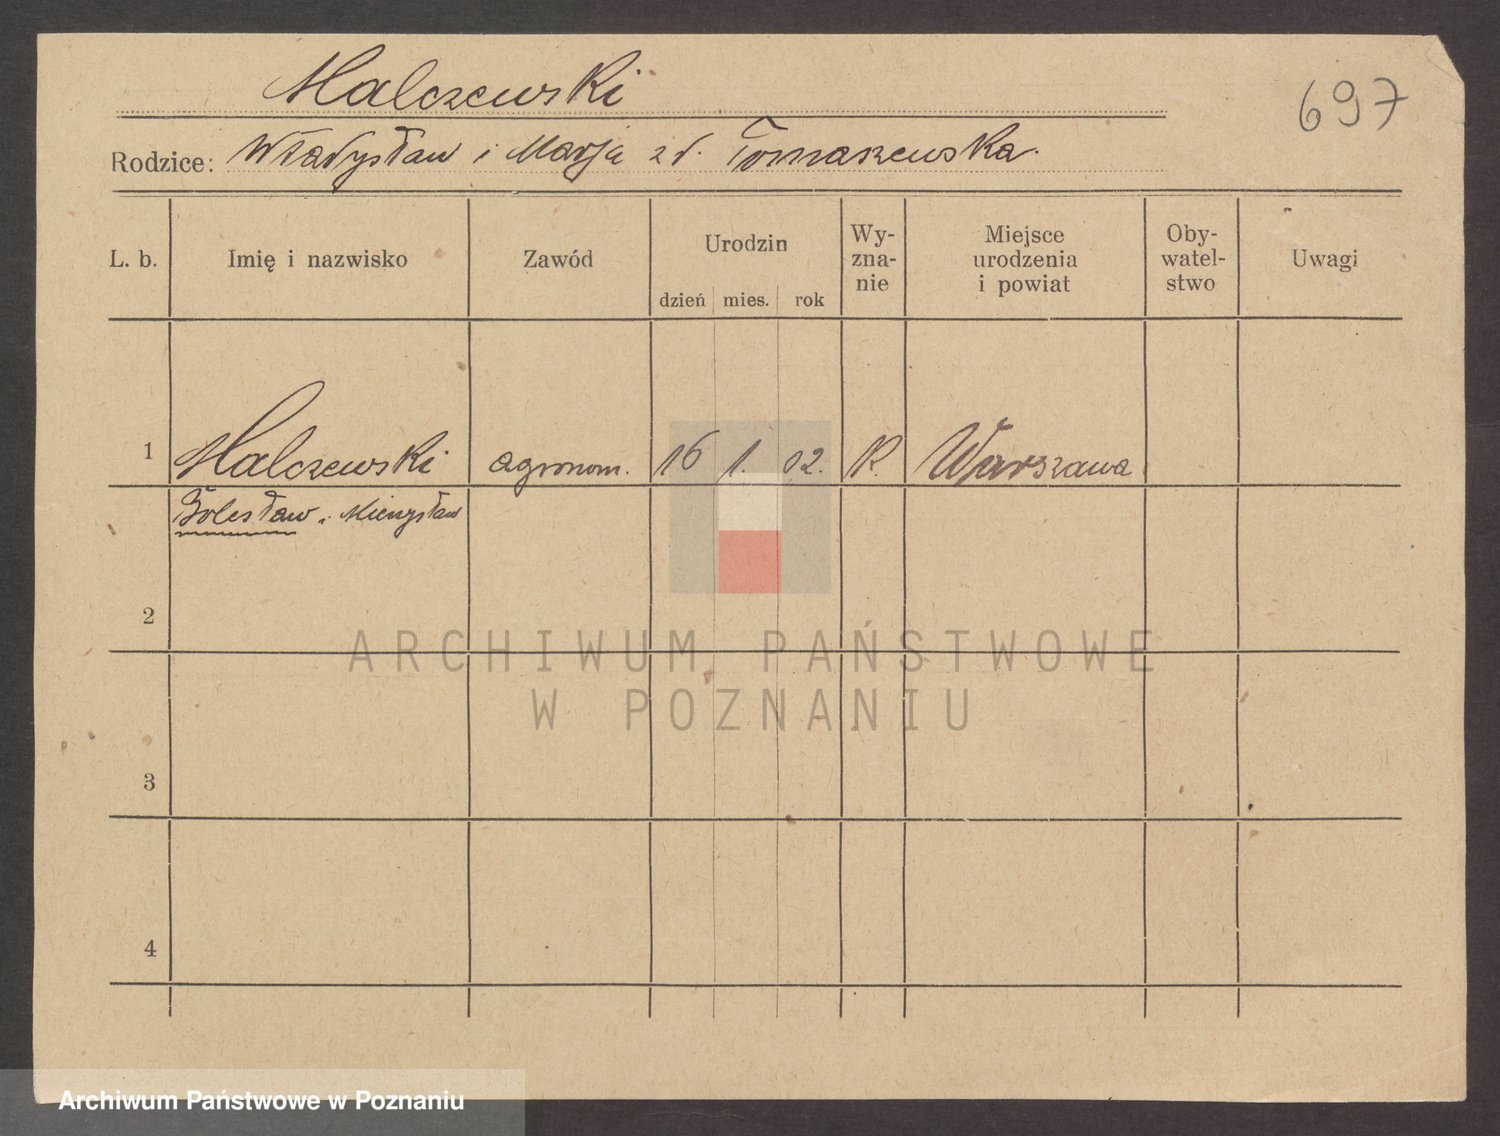 Malczewski
697
Rodzice: Władysław i Marja z d. Tomaszewska.
L. b.
Imię i nazwisko
Zawód
Urodzin
dzień
mies.
rok
Wy-
zna-
nie
Miejsce
urodzenia
i powiat
Oby-
watel-
stwo
Uwagi
1 Malczewski agronom. 16 1. 02. R. Warszawa
Bolesław
2
3
4
ARCHIWUM PAŃSTWOWE
W POZNANIU
Archiwum Państwowe w Poznaniu